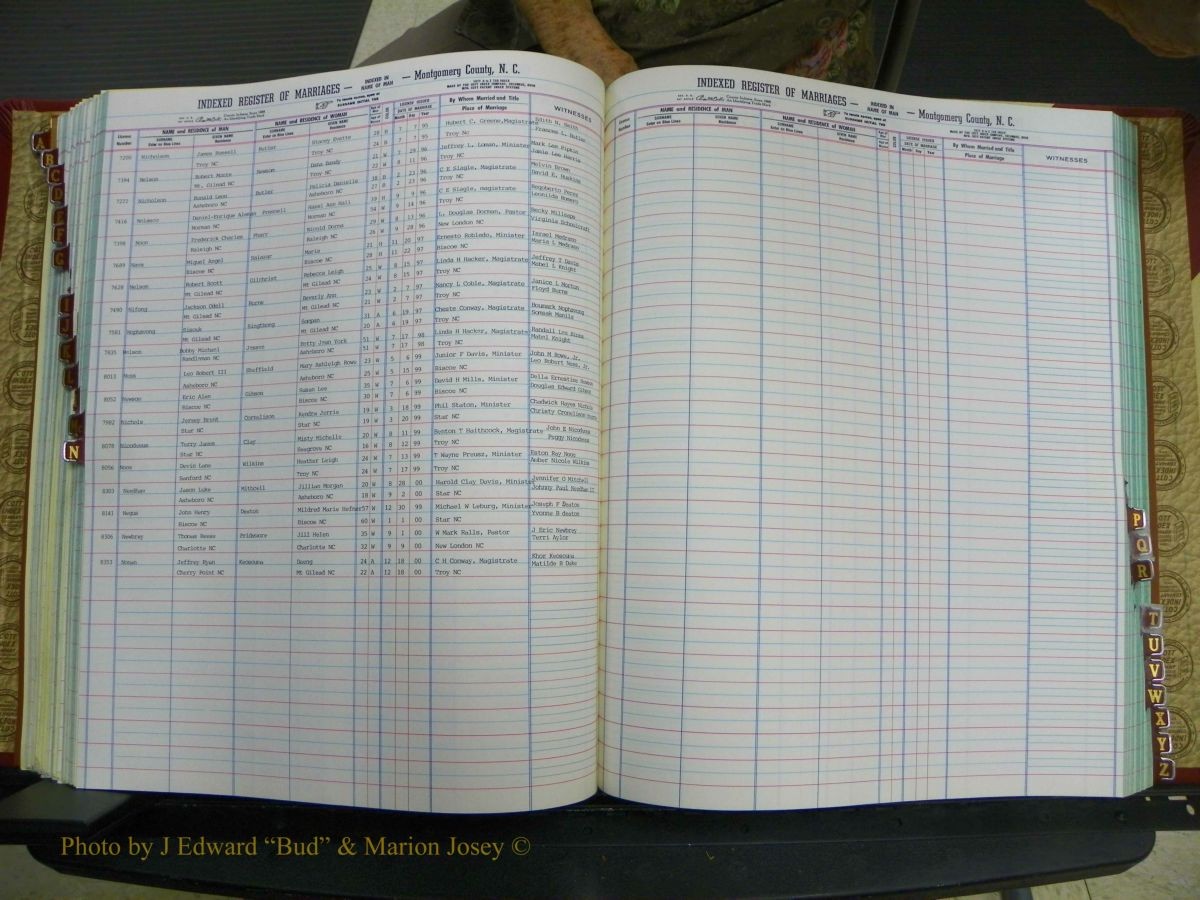 INDEXED REGISTER OF MARRIAGES — INDEXED IN NAME OF MAN — Montgomery County, N. C.
License Number NAME and RESIDENCE OF MAN NAME and RESIDENCE OF WOMAN LICENSE ISSUED DATE OF MARRIAGE By Whom Married and Title WITNESSES
SURNAME GIVEN NAME SURNAME GIVEN NAME Month Day Year Place of Marriage
Nicholson James Russell Butler Stacey Yvette 7 7 95 Hubert C. Greene, Magistrate Edith H. Smith
Troy NC Troy NC 7 7 95 Troy NC
7194 Nelson Robert Monte Newsom Dana Dandy Jeffrey L. Loman, Minister Mark Lee Pipkin
Mt. Gilead NC Troy NC 8 11 96 Troy NC Jamie Lee Harris
7272 Nicholson Ronald Leon Butler Felicia Danielle 2 23 96 C E Slagle, magistrate Melvin Brown
Asheboro NC Asheboro NC 2 23 96 Troy NC David E. Huskins
7416 Nolasco Daniel-Enrique Presnell Hazel Ann Hall 9 9 96 C E Slagle, magistrate Rogoberto Perez
Norman NC Norman NC 9 14 96 Troy NC
7398 Noon Frederick Charles Pharr Nicold Dorna 8 13 96 L. Douglas Dorman, Pastor Becky Millsaps
Raleigh NC Raleigh NC 9 28 96 New London NC Virginia Schoolcraft
7609 Nava Miguel Angel Salazar Maria 21 H 11 20 97 Ernesto Robledo, Minister Israel Medrano
Biscoe NC Biscoe NC 20 H 11 22 97 Biscoe NC Maria L Medrano
7628 Nelson Robert Scott Gilchrist Rebecca Leigh 25 W 8 15 97 Linda H Hacker, Magistrate Jeffrey T Davis
Mt Gilead NC Mt Gilead NC 24 W 8 15 97 Troy NC Mabel L Knight
7490 Nifong Jackson Odell Burns Beverly Ann 23 W 2 7 97 Nancy L Coble, Magistrate Janice L Morton
Mt Gilead NC Mt Gilead NC 21 W 2 7 97 Troy NC Floyd Burns
7581 Nophavong Sisouk Singthong Sompan 31 A 6 19 97 Cheste Conway, Magistrate Bounmark Nophavong
Mt Gilead NC Mt Gilead NC 20 A 6 19 97 Troy NC Somsak Manila
7835 Nelson Bobby Michael Jensen Betty Jean York 51 W 7 17 98 Linda H Hacker, Magistrate Randall Lee Hines
Randleman NC Asheboro NC 51 W 7 17 98 Troy NC Mabel Knight
8013 Ness Leo Robert III Sheffield Mary Ashleigh Rowe 23 W 5 6 99 Junior F Davis, Minister John M Rowe, Jr.
Asheboro NC Asheboro NC 25 W 5 15 99 Biscoe NC Leo Robert Ness, Jr.
8052 Newsom Eric Alen Gibson Susan Lee 35 W 7 6 99 David H Mills, Minister Della Ernestine Newsom
Biscoe NC Biscoe NC 30 W 7 6 99 Biscoe NC Douglas Edward Gibson
7982 Nichols Jersey Brent Cornelison Kendra Jerris 19 W 3 18 99 Phil Staton, Minister Chadwick Hayes Nichols
Star NC Star NC 19 W 3 20 99 Star NC Christy Cronelison
8078 Nicodusus Terry Jason Clay Misty Michelle 20 W 8 11 99 Benton T Haithcock, Magistrate John E Nicodusus
Star NC Seagrove NC 16 W 8 12 99 Troy NC Peggy Nicodusus
8056 Noos Devin Lane Wilkins Heather Leigh 24 W 7 13 99 T Wayne Preusz, Minister Eston Ray Noos
Sanford NC Troy NC 24 W 7 17 99 Troy NC Amber Nicole Wilkins
8303 Needham Jason Luke Mithcell Jillian Morgan 20 W 8 28 00 Harold Clay Davis, Minister Jynnifer O Mitchell
Asheboro NC Asheboro NC 18 W 9 2 00 Star NC Johnny Paul Needham II
8141 Negus John Henry Deaton Mildred Marie Hefner 57 W 12 30 99 Michael W Leburg, Minister Joseph F Deaton
Biscoe NC Biscoe NC 60 W 1 1 00 Star NC Yvonne B Deaton
8306 Newbrey Thomas Reese Pridmore Jill Helen 35 W 9 1 00 W Mark Ralls, Pastor J Eric Newbrey
Charlotte NC Charlotte NC 32 W 9 9 00 New London NC Terri Aylor
8353 Nowen Jeffrey Ryan Keosouna Daeng 24 A 12 18 00 C H Conway, Magistrate Khor Keosouna
Cherry Point NC Mt Gilead NC 22 A 12 18 00 Troy NC Matilde B Dake
INDEXED REGISTER OF MARRIAGES — INDEXED IN NAME OF MAN — Montgomery County, N. C.
License Number NAME and RESIDENCE OF MAN NAME and RESIDENCE OF WOMAN LICENSE ISSUED DATE OF MARRIAGE By Whom Married and Title WITNESSES
SURNAME GIVEN NAME SURNAME GIVEN NAME Month Day Year Place of Marriage
A
B
C
D
F
G
J
K
N
P
Q
R
T
U
V
W
X
Y
Z
Photo by J Edward “Bud” & Marion Josey ©